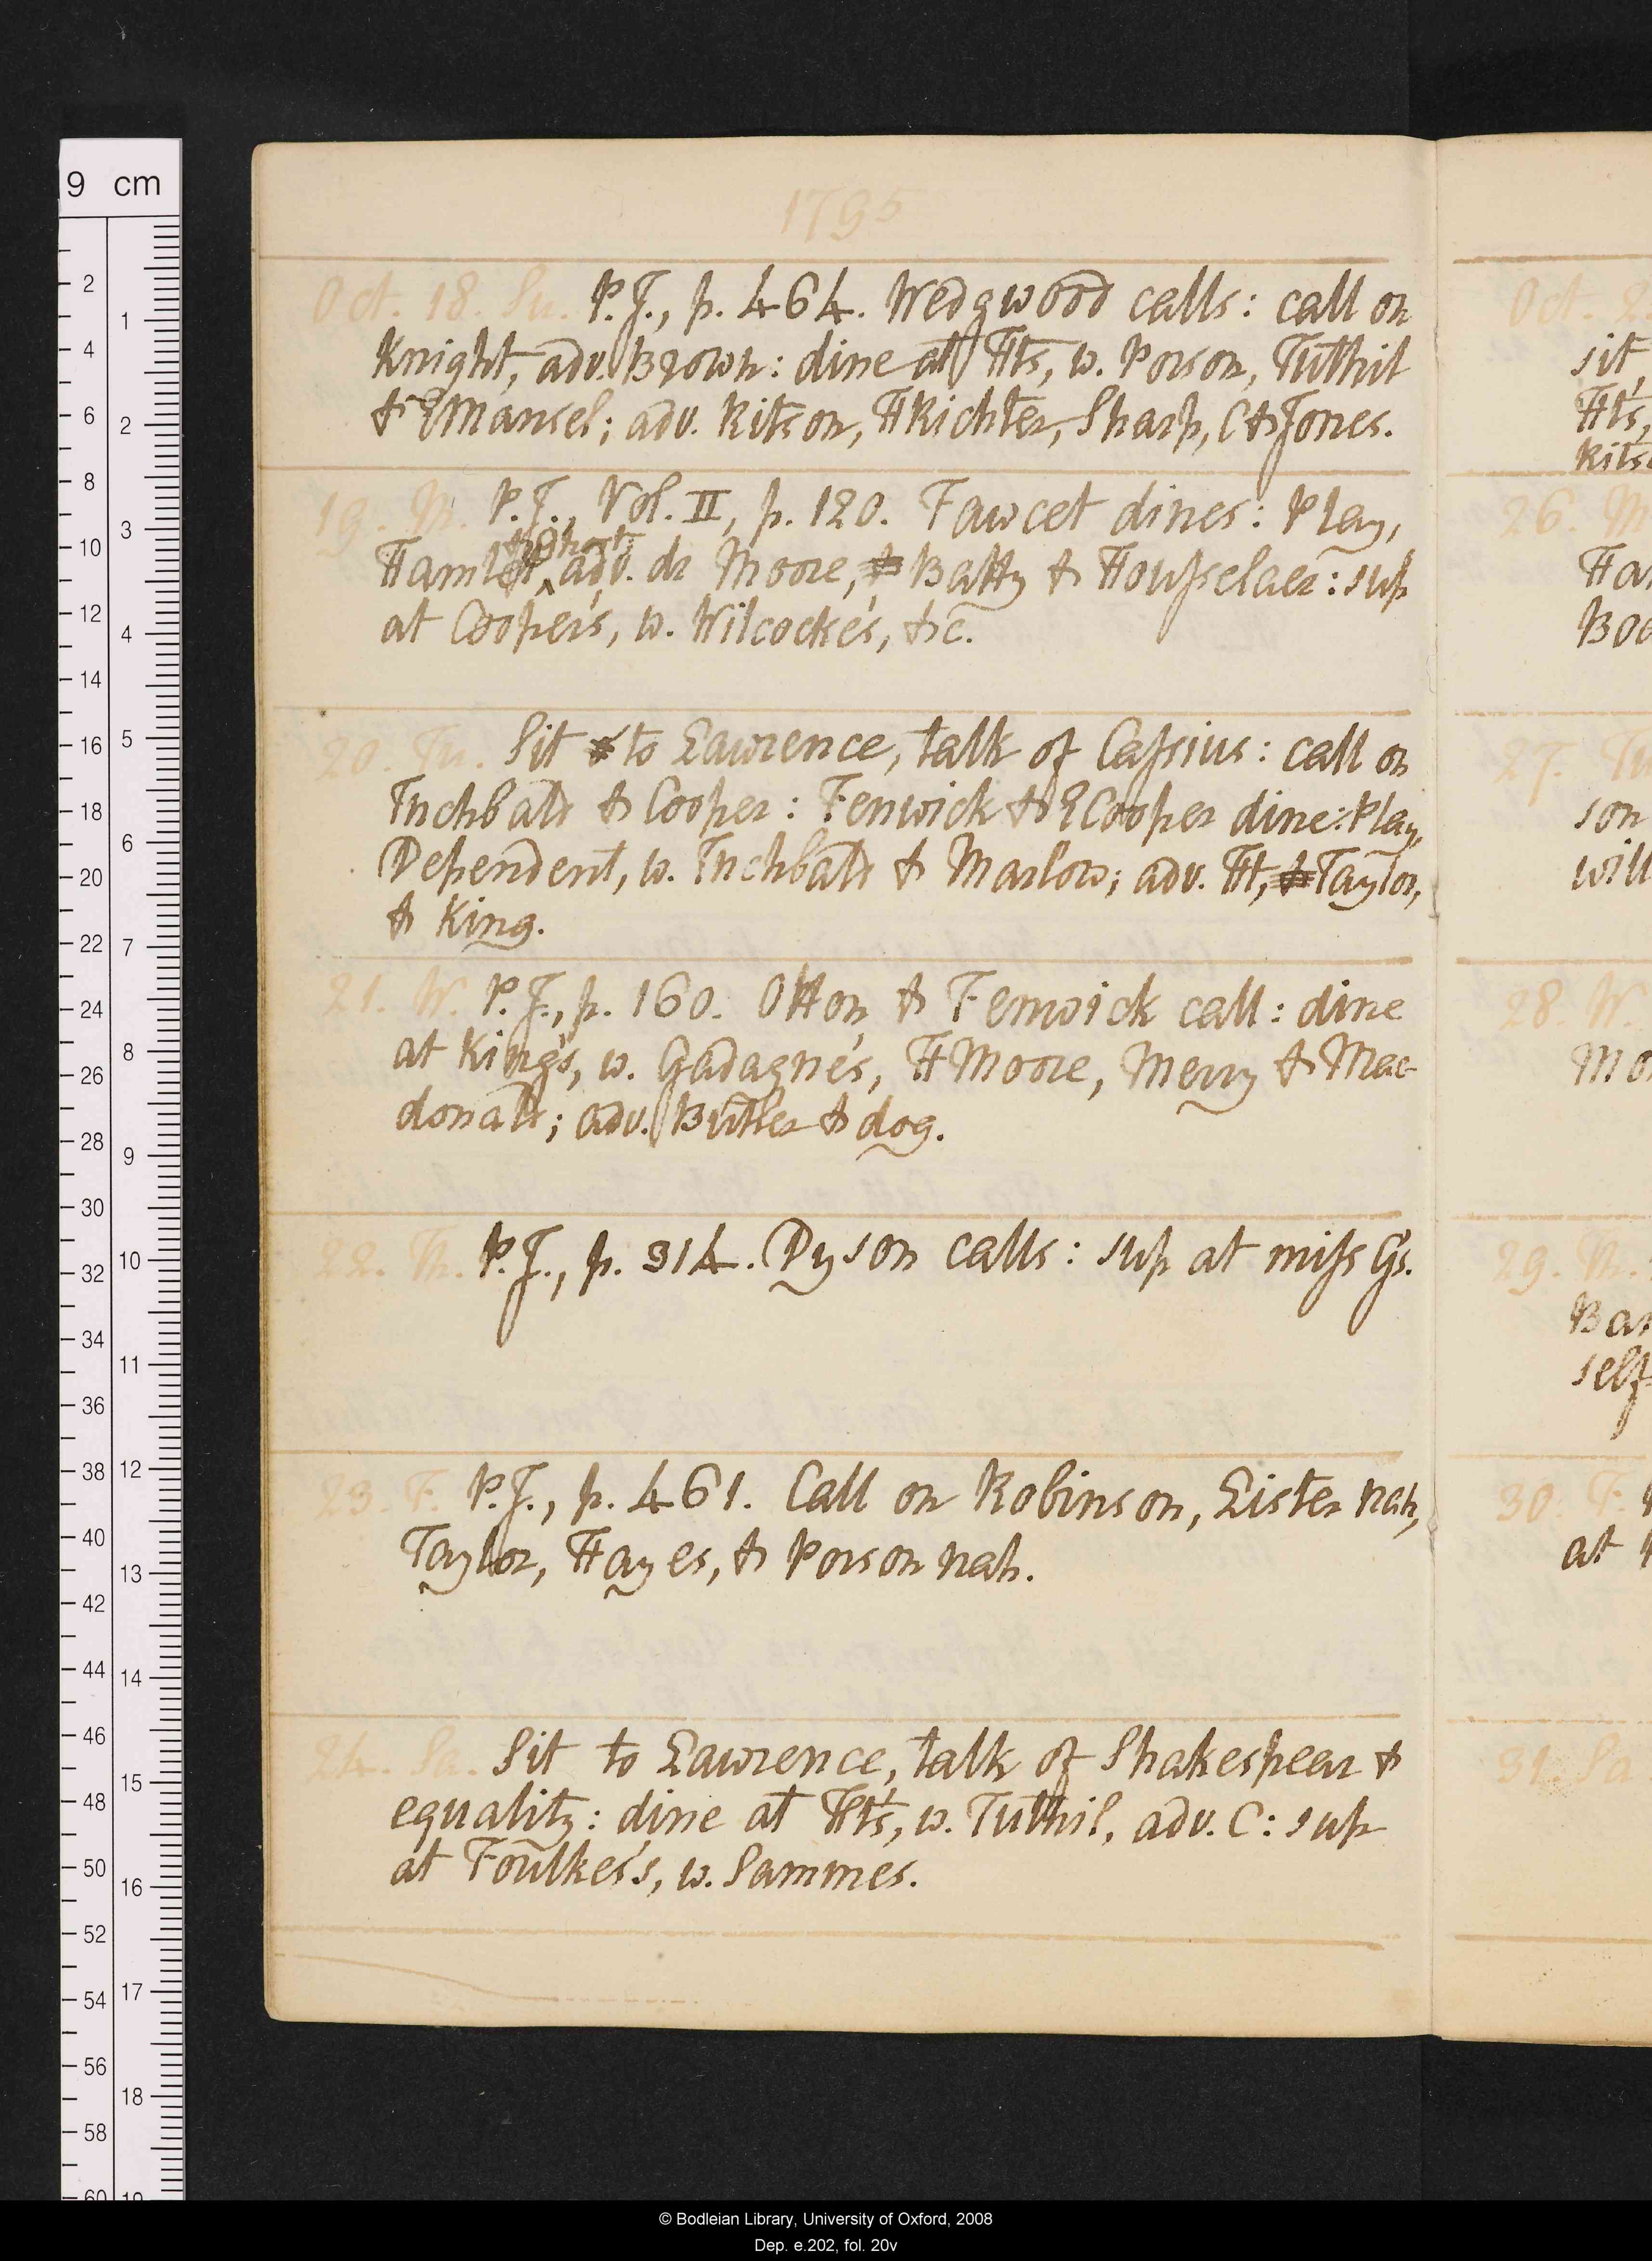 1795
Oct. 18. Su. P. J., p. 464. Wedgwood calls: call on
Knight, adv. Brown: dine at Hts, w. Porson, Tuthil
& E Mansel; adv. Ritson, H Richter, Sharp, C & Jones.
19. M. P. J., Vol. II, p. 120. Fawcet dines: Play,
Hamlet, adv. dr Moore, Batty & Housselaer: sup
at Cooper's, w. Wilcocke's, &c.
20. Tu. Sit to Lawrence, talk of Cassius: call on
Inchbald & Cooper: Fenwick & E Cooper dine: Play,
Dependent, w. Inchbald & Marlow; adv. Ht, Taylor,
& King.
21. W. P. J., p. 160. Otton & Fenwick call: dine
at King's, w. Gadagne's, H Moore, Merry & Mac-
donald; adv. Butler & dog.
22. Th. P. J., p. 314. Dyson calls: sup at miss G's.
23. F. P. J., p. 461. Call on Robinson, Lister nah,
Taylor, Hayes, & Porson nah.
24. Sa. Sit to Lawrence, talk of Shakespear &
equality: dine at Ht's, w. Tuthil, adv. C: sup
at Foulkes's, w. Sammes.
Oct. 2
sit,
Hts,
Rits
26. M
Ha
Boo
27. Tu
son
will
28. W.
Mo
29. Th.
Bar
self
30. F.
at
31. Sa
9 cm
© Bodleian Library, University of Oxford, 2008
Dep. e.202, fol. 20v